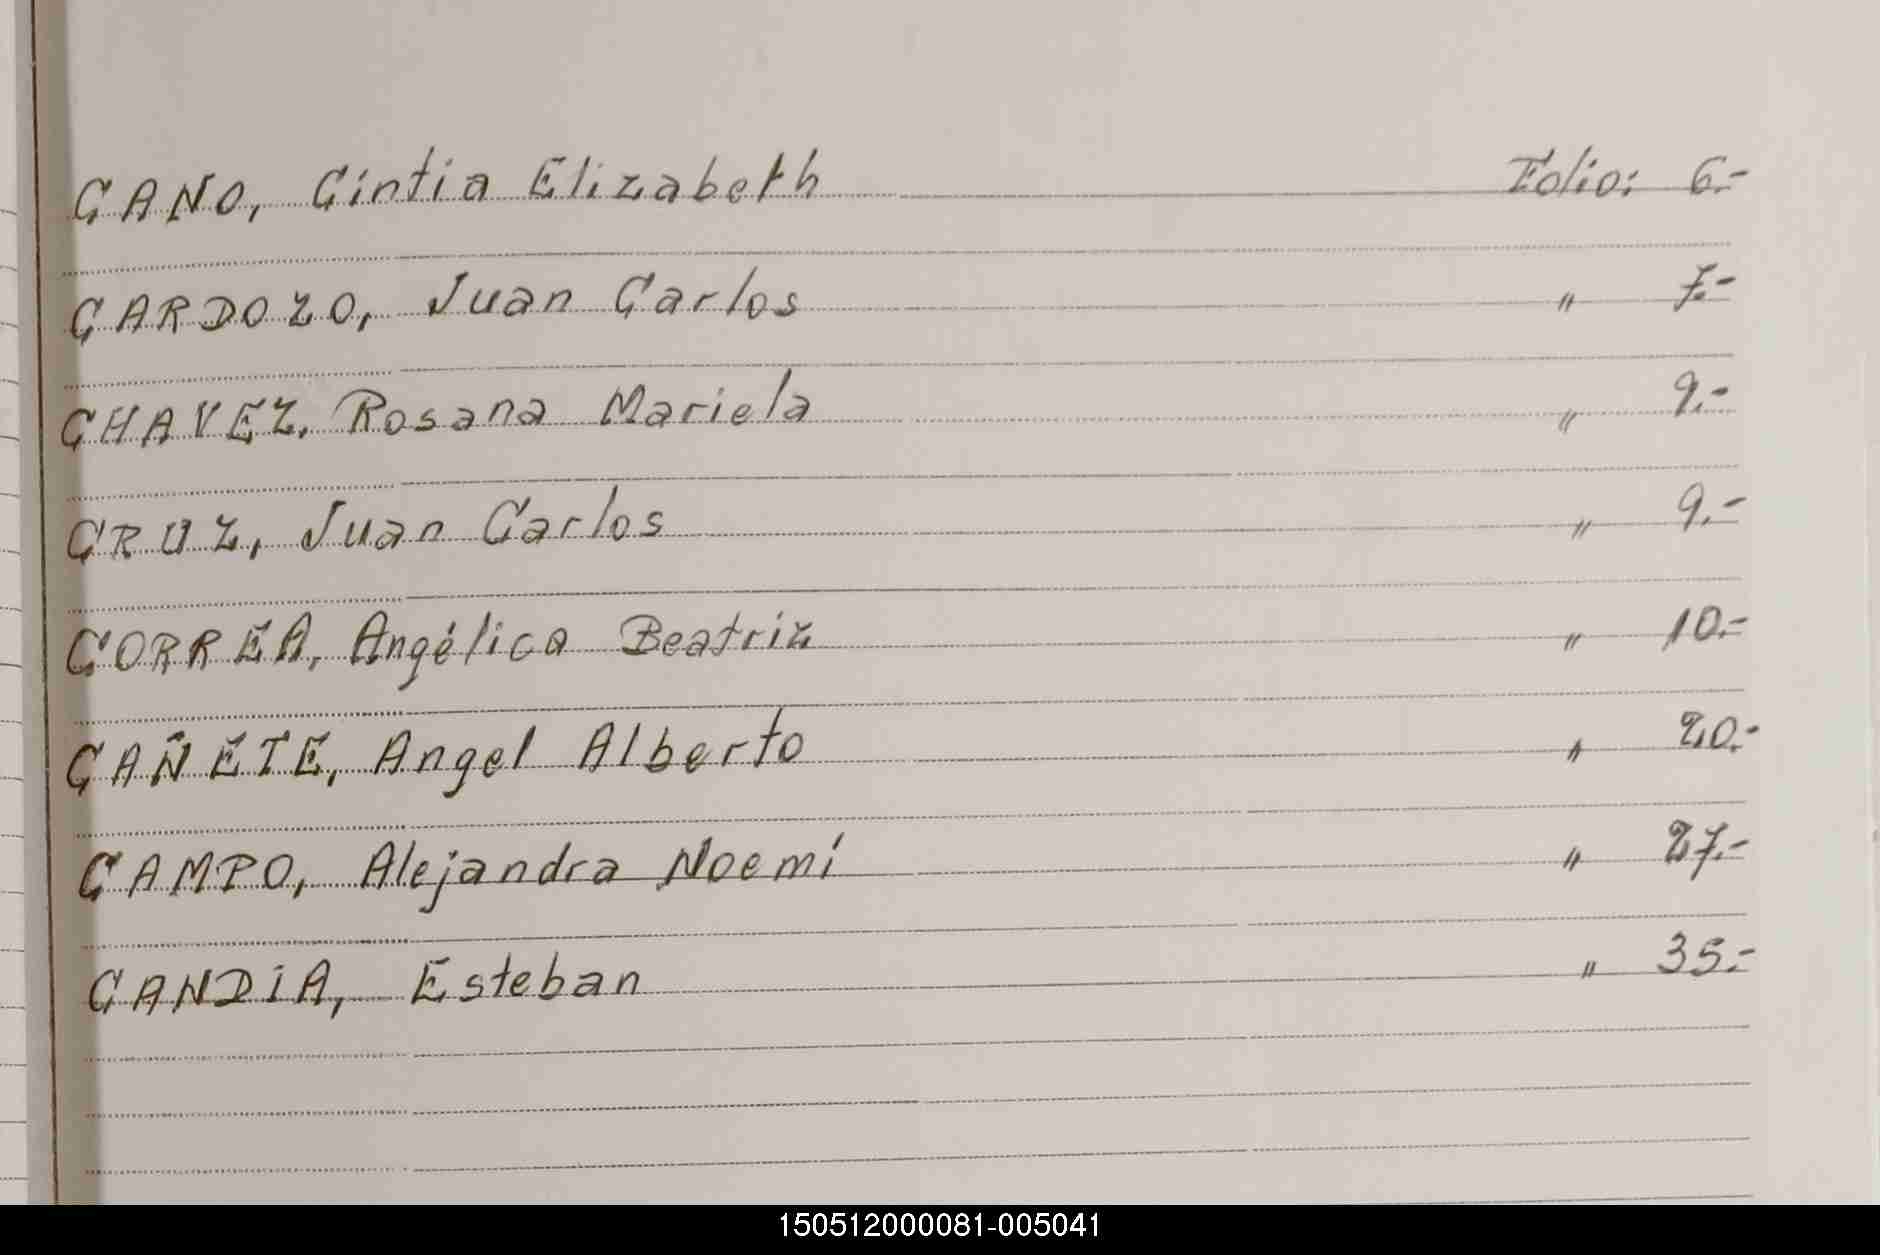 CANO, Cintia Elizabeth Folio: 6.-
CARDOZO, Juan Carlos " 7.-
CHAVEZ, Rosana Mariela " 9.-
CRUZ, Juan Carlos " 9.-
CORREA, Angélica Beatriz " 10.-
CAÑETE, Angel Alberto " 20.-
CAMPO, Alejandra Noemí " 27.-
CANDIA, Esteban " 35.-
150512000081-005041